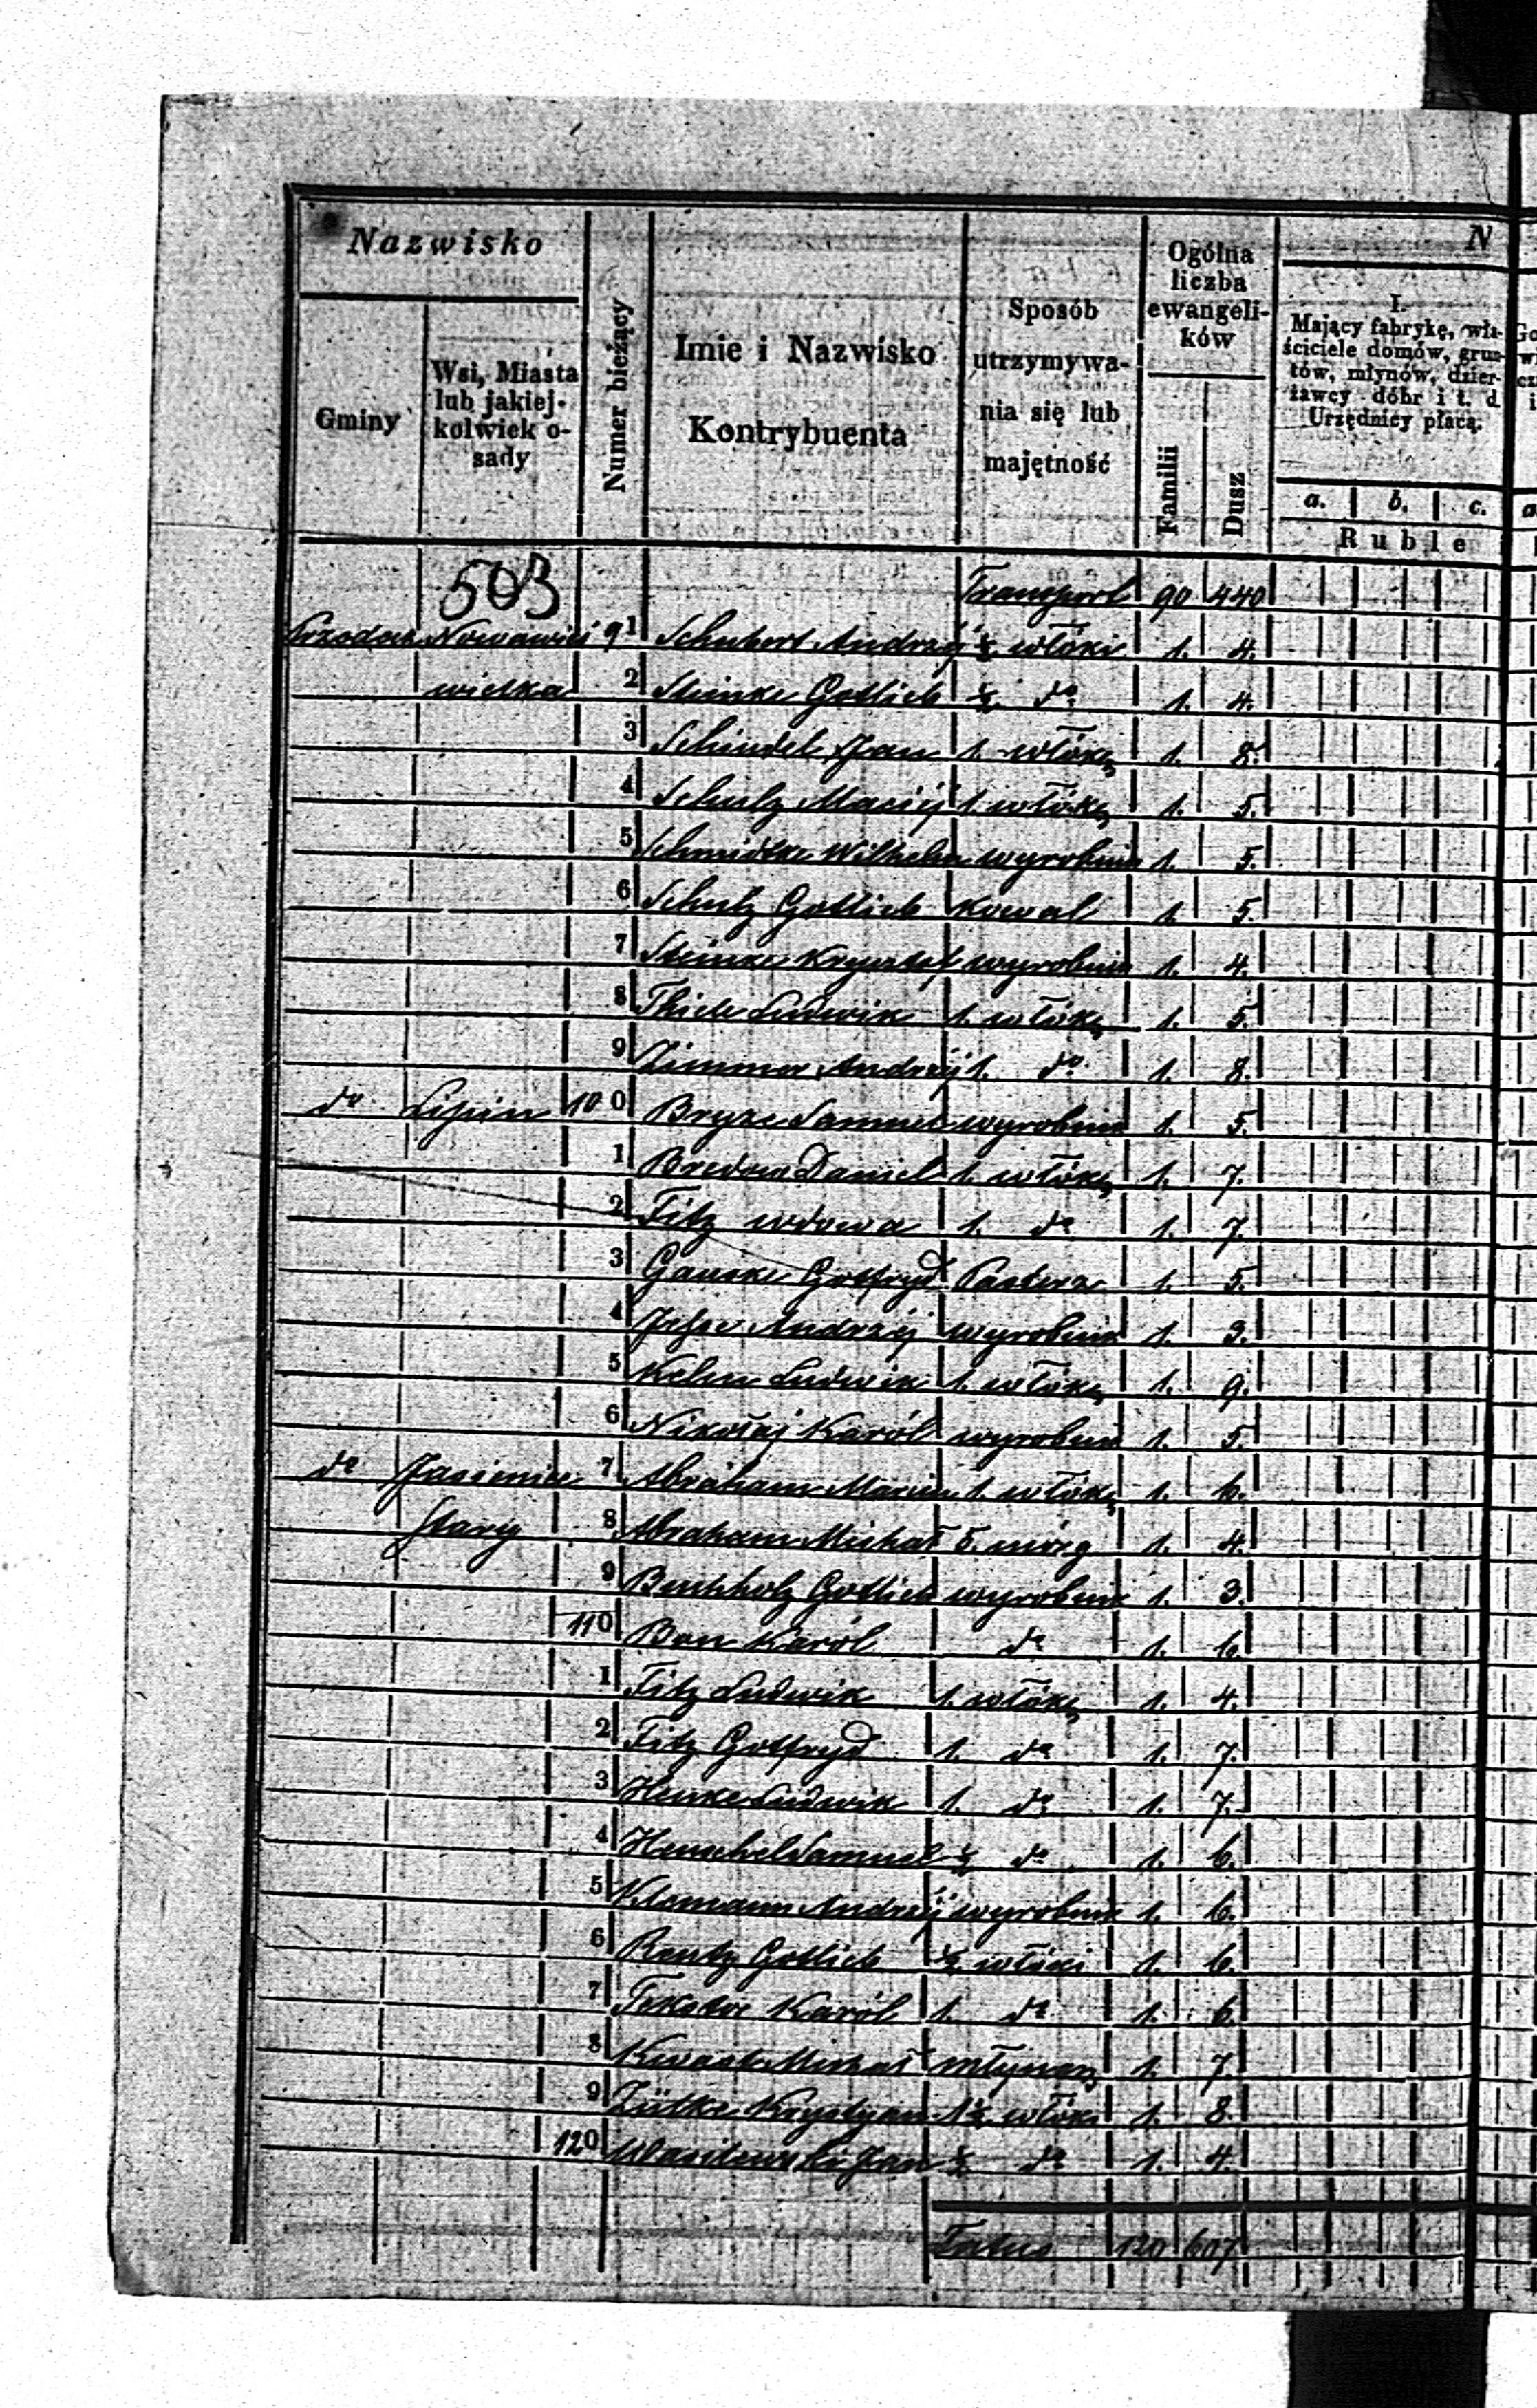 Nazwisko
Gminy
Wsi, Miasta
lub jakiej-
kolwiek o-
sady
Numer bieżący
Imie i Nazwisko
Kontrybuenta
Sposób
utrzymywa-
nia się lub
majętność
Ogólna
liczba
ewangeli-
ków
Familii
Dusz
N
I.
Mający fabrykę, wła-
ściciele domów, grun-
tów, młynów, dzier-
żawcy dóbr i t. d.
Urzędnicy płacą.
a. b. c.
Ruble
503 Transport 90 440
Nowawieś 91 Schubert Andrzej ½ włóki 1. 4.
wielka 2 Steinke Gotlieb ½ do 1. 4.
3 Schindel Jan 1. włókę 1. 8.
4 Schulz Maciej 1. włókę 1. 5.
5 Schmidtke Wilhelm wyrobnik 1. 5.
6 Schulz Gotlieb Kowal 1. 5.
7 Steinke Krysztof wyrobnik 1. 4.
8 Thiele Ludwik 1. włókę 1. 5.
9 Zimmer Andrzej 1. do 1. 8.
do Lipiny 100 Samuel wyrobnik 1. 5.
1 Bredow Daniel 1. włókę 1. 7.
2 Fitz wdowa 1. do 1. 7.
3 Ganske Gotfryd Pasterz 1. 5.
4 Andrzej wyrobnik 1. 3.
5 Ludwik 1. włókę 1. 9.
6 Nikołaj Karól wyrobnik 1. 5.
do Jasieniec 7 Abraham 1. włókę 1. 6.
Stary 8 Abraham Michał 5. mórg 1. 4.
9 Buchholz Gotlieb wyrobnik 1. 3.
110 Karól do 1. 6.
1 Fitz Ludwik 1. włókę 1. 4.
2 Fitz Gotfryd 1. do 1. 7.
3 Henke Ludwik 1. do 1. 7.
4 Henschel Samuel ½ do 1. 6.
5 Andrzej wyrobnik 1. 6.
6 Rentz Gotlieb ½ włóki 1. 6.
7 Karól 1. do 1. 6.
8 Kwast Michał młynarz 1. 7.
9 Krystyan 1½ włóki 1. 8.
120 Wasilewski Jan ½ do 1. 4.
Latus 120 607